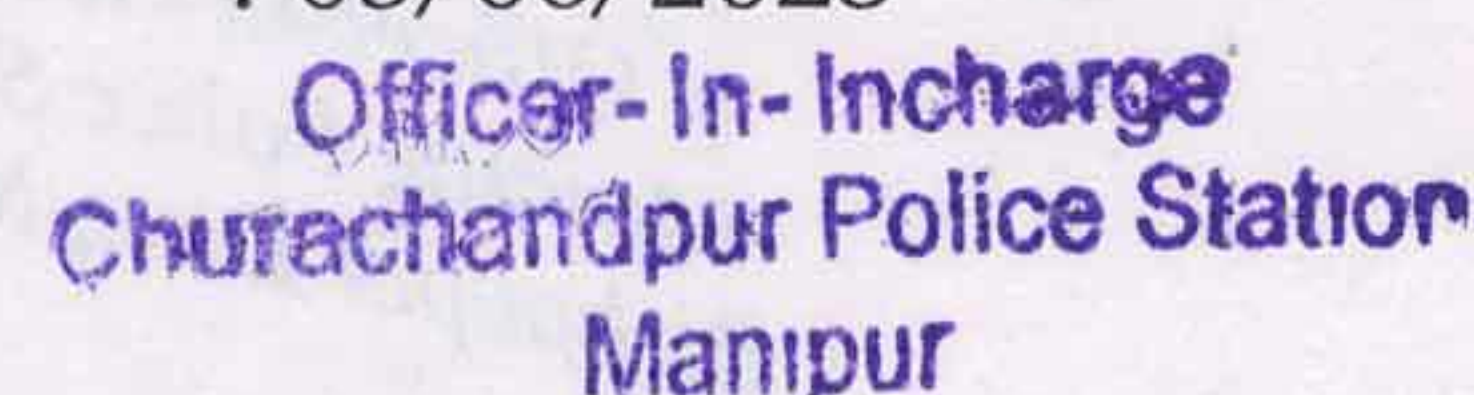 Officer-In-Incharge
Churachandpur Police Station
Manipur